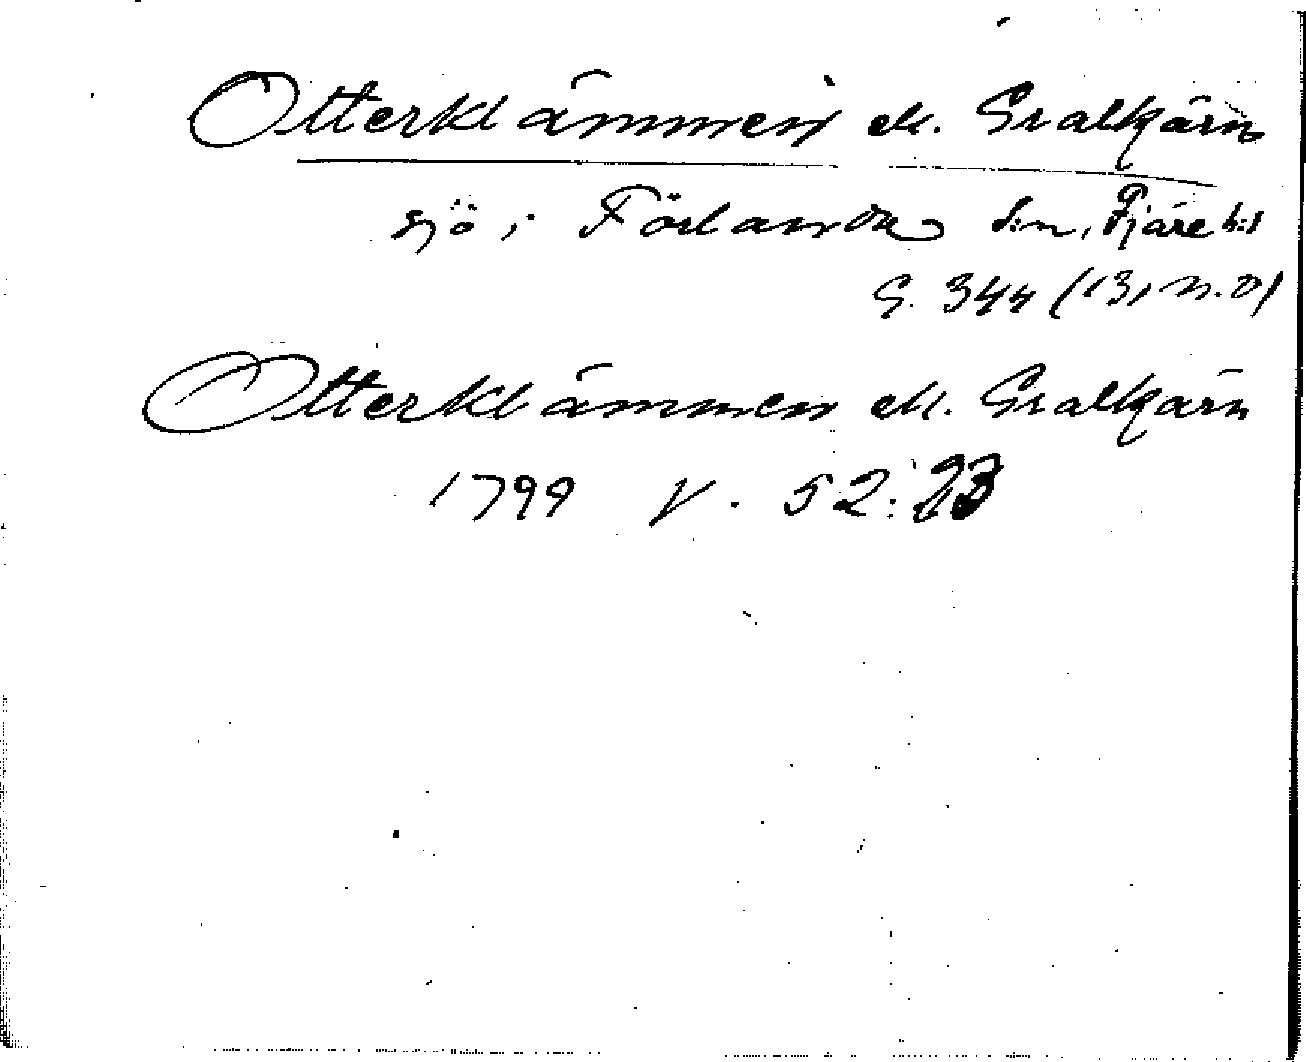 Otterklämmen ell. Gralkärn
sjö i Förlanda s:n, Fjäre h:d
G. 344 (13, n.o)
Otterklämmen ell. Gralkärn
1799 V. 52:23